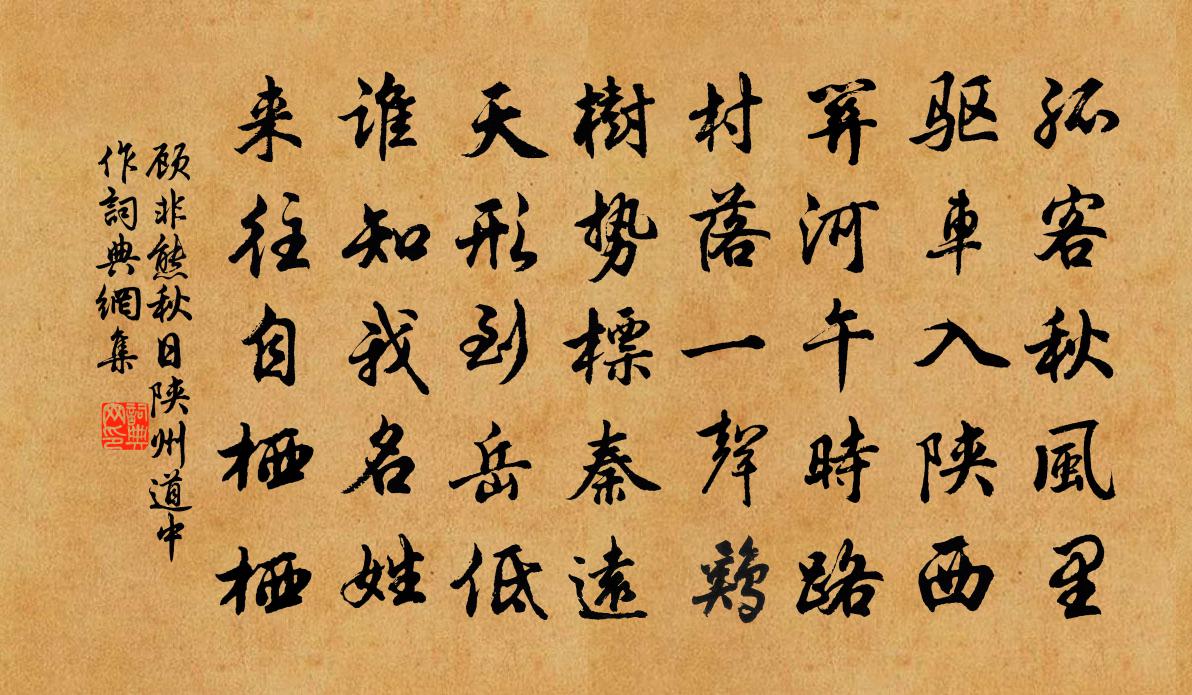 孤客秋風里
驱車入陕西
關河午時路
村落一聲鷄
樹势標秦遠
天形到岳低
谁知我名姓
来往自栖栖
顾非熊秋日陕州道中
作詞典網集
詞典网印